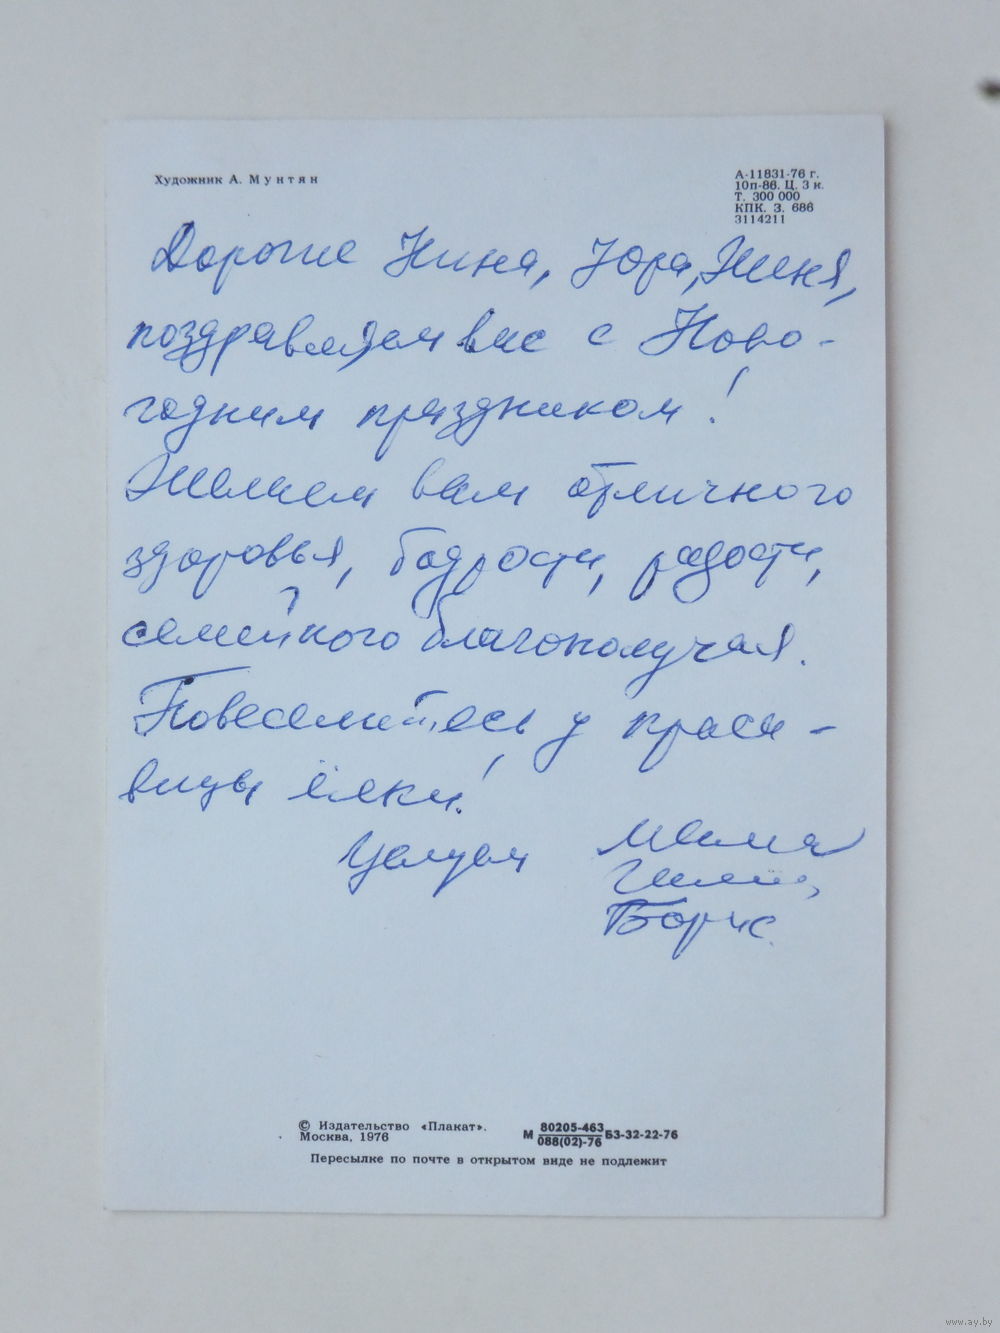 Художник А. Мунтян
А-11831-76 г.
10п-86. Ц. 3 к.
Т. 300 000
КПК. З. 686
3114211
Дорогие Нина, Юра, Женя,
поздравляем вас с Ново-
годним праздником!
Желаем вам отличного
здоровья, бодрости, радости,
семейного благополучия.
Повеселитесь у краси-
вицы ёлки!
Целуем Мама
Борис.
© Издательство «Плакат».
Москва, 1976
М 80205-463 БЗ-32-22-76
088(02)-76
Пересылке по почте в открытом виде не подлежит
www.ay.by